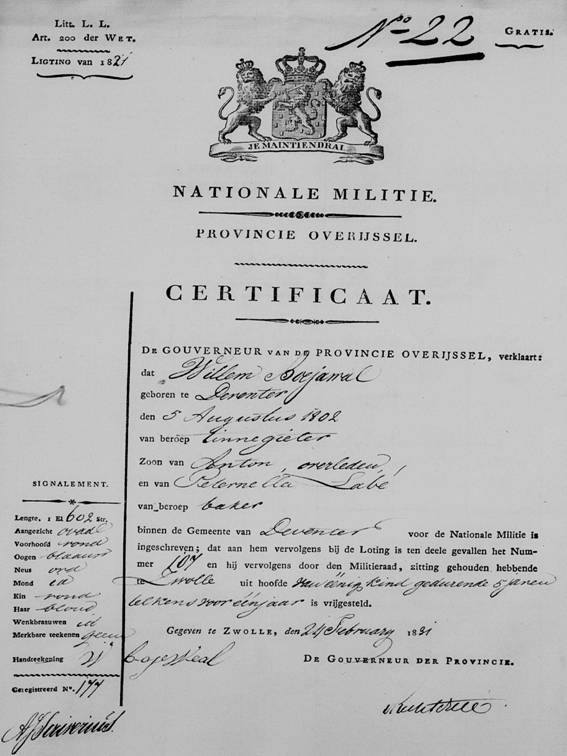 Litt. L. L.
Art. 200 der WET.
LIGTING van 1821
No 22
GRATIS.
JE MAINTIENDRAI
NATIONALE MILITIE.
PROVINCIE OVERIJSSEL.
CERTIFICAAT.
DE GOUVERNEUR VAN DE PROVINCIE OVERIJSSEL, verklaart:
dat Willem
geboren te Deventer
den 5 Augustus 1802
van beroep tinnegieter
Zoon van Anton, overleden
en van Peternella Labé
van beroep baker
binnen de Gemeente van Deventer voor de Nationale Militie is
ingeschreven; dat aan hem vervolgens bij de Loting is ten deele gevallen het Num-
mer 107 en hij vervolgens door den Militieraad, zitting gehouden hebbende
te Zwolle uit hoofde van éénig kind gedurende 5 jaren
telkens voor één jaar is vrijgesteld.
Gegeven te ZWOLLE, den 24 February 1831
DE GOUVERNEUR DER PROVINCIE.
SIGNALEMENT.
Lengte, 1 El 602 Str.
Aangezicht ovaal
Voorhoofd rond
Oogen blaauw
Neus ord
Mond id
Kin rond
Haar blond
Wenkbrauwen id
Merkbare teekenen geen
Handteekening W
Geregistreerd No. 177